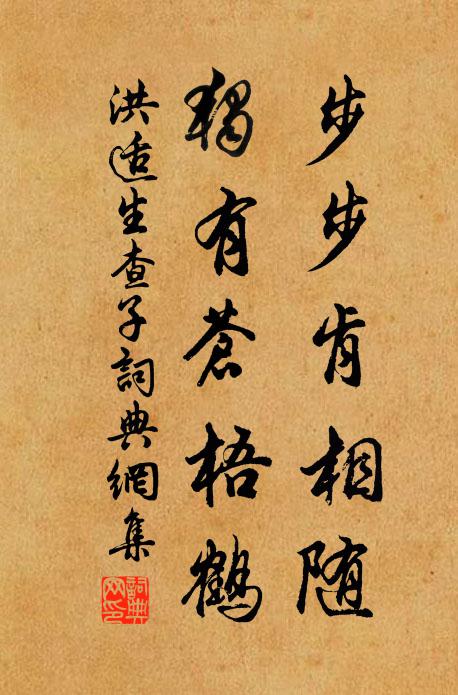 步步肯相随
独有苍梧鹤
洪适生查子詞典網集
詞典网印